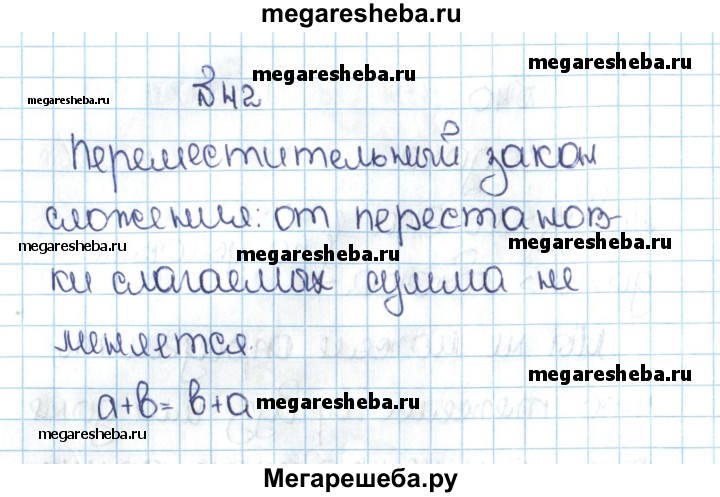 megaresheba.ru
megaresheba.ru
№42 megaresheba.ru
megaresheba.ru
Переместительный закон
сложения: от перестанов-
megaresheba.ru megaresheba.ru megaresheba.ru
ки слагаемых сумма не
меняется.
megaresheba.ru
a+b=b+a megaresheba.ru
megaresheba.ru
Мегарешеба.ру